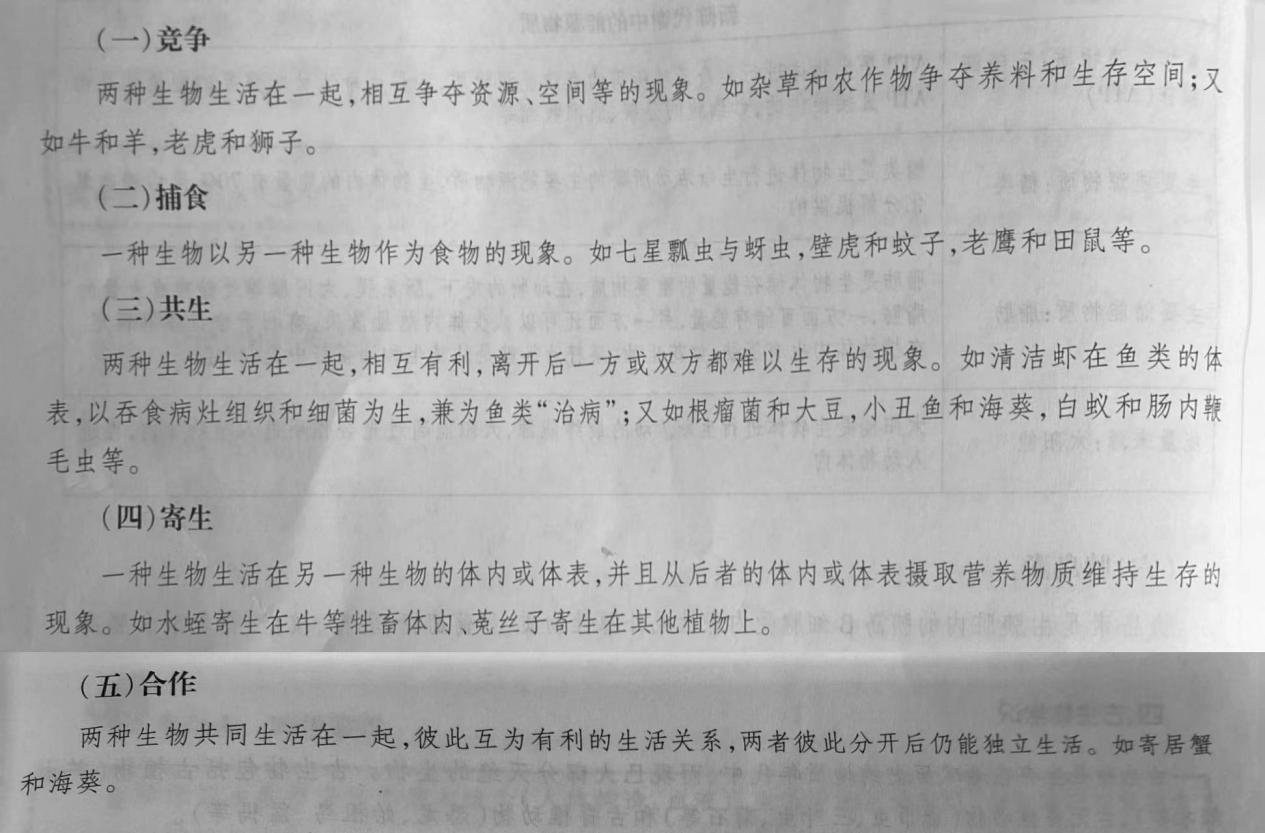 (一)竞争
两种生物生活在一起,相互争夺资源、空间等的现象。如杂草和农作物争夺养料和生存空间;又
如牛和羊,老虎和狮子。
(二)捕食
一种生物以另一种生物作为食物的现象。如七星瓢虫与蚜虫,壁虎和蚊子,老鹰和田鼠等。
(三)共生
两种生物生活在一起,相互有利,离开后一方或双方都难以生存的现象。如清洁虾在鱼类的体
表,以吞食病灶组织和细菌为生,兼为鱼类“治病”;又如根瘤菌和大豆,小丑鱼和海葵,白蚁和肠内鞭
毛虫等。
(四)寄生
一种生物生活在另一种生物的体内或体表,并且从后者的体内或体表摄取营养物质维持生存的
现象。如水蛭寄生在牛等牲畜体内、菟丝子寄生在其他植物上。
(五)合作
两种生物共同生活在一起,彼此互为有利的生活关系,两者彼此分开后仍能独立生活。如寄居蟹
和海葵。